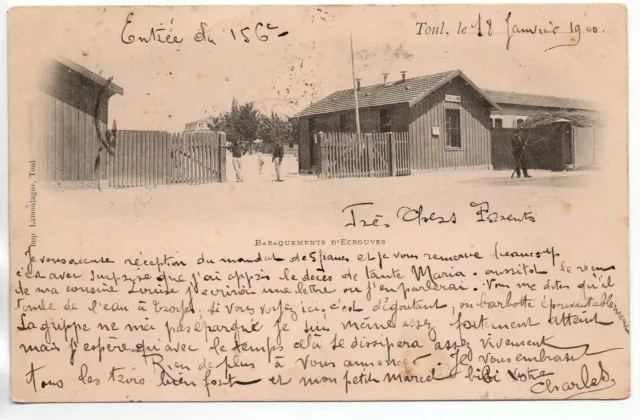 Entrée du 156e
Toul, le 18 Janvier 1900
Charles
Imp. Lamontagne, Toul
Très Chers Parents
BARAQUEMENTS D'ECROUVES
Je vous accuse réception du mandat de 5 francs et je vous remercie beaucoup
c'est avec surprise que j'ai appris le décès de tante Maria. aussitôt le reçu
de ma cousine Louise j'écrivis une lettre où j'en parlerai. Vous me dites qu'il
tombe de l'eau à torts, si vous voyiez ici, c'est dégoûtant, on barbotte épouvantablement
La grippe ne m'a pas épargné je suis même assez fortement atteint
mais j'espère qu'avec le temps cela se dissipera assez vivement
Rien de plus à vous annoncer. Je vous embrasse
tous les trois bien fort et mon petit Marcel bibi votre
Charles